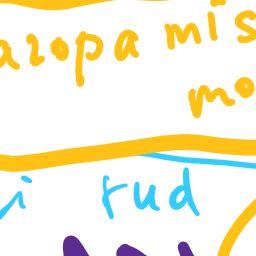 azopa mis
mo
i rud